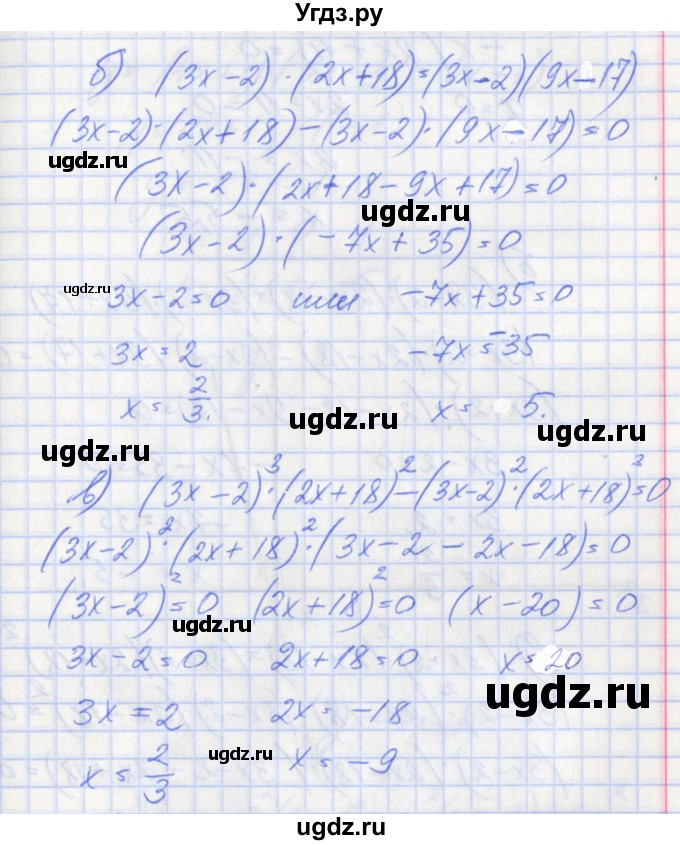 Угдз.ру
б) (3x-2)·(2x+18)=(3x-2)(9x-17)
(3x-2)·(2x+18)-(3x-2)·(9x-17)=0
ugdz.ru
(3x-2)·(2x+18-9x+17)=0
ugdz.ru
(3x-2)·(-7x+35)=0
ugdz.ru
3x-2=0 или -7x+35=0
3x=2 -7x=-35
x=2/3. x=5.
ugdz.ru
ugdz.ru
ugdz.ru
в) (3x-2)³·(2x+18)²-(3x-2)²·(2x+18)³=0
(3x-2)²·(2x+18)²·(3x-2-2x-18)=0
(3x-2)²=0 (2x+18)²=0 (x-20)=0
ugdz.ru
3x-2=0 2x+18=0 x=20
ugdz.ru
3x=2 2x=-18
x=2/3 x=-9
ugdz.ru
ugdz.ru
ugdz.ru